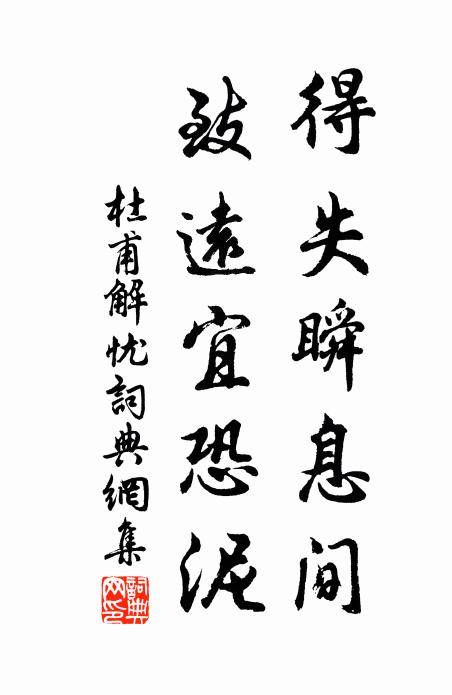 得失瞬息間
致遠宜恐泥
杜甫解忧詞典網集
詞典網印